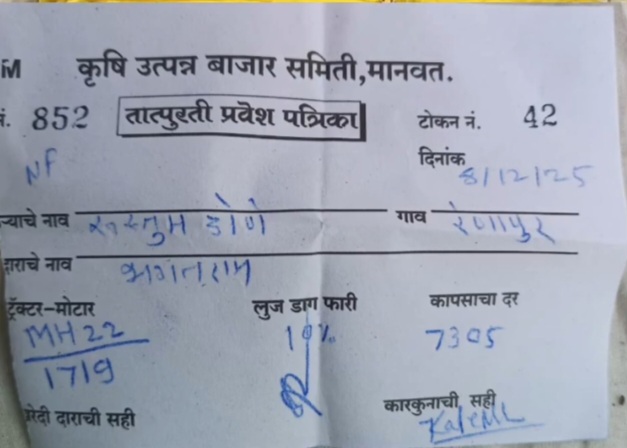 कृषि उत्पन्न बाजार समिती,मानवत.
नं. 852 तात्पुरती प्रवेश पत्रिका टोकन नं. 42
NF दिनांक 8/12/25
ऱ्याचे नाव रुस्तुम डोणे गाव रेणापुर
दाराचे नाव भगतराम
ट्रॅक्टर-मोटार लुज डाग फारी कापसाचा दर
MH22 7305
1719
खरेदी दाराची सही कारकुनाची सही